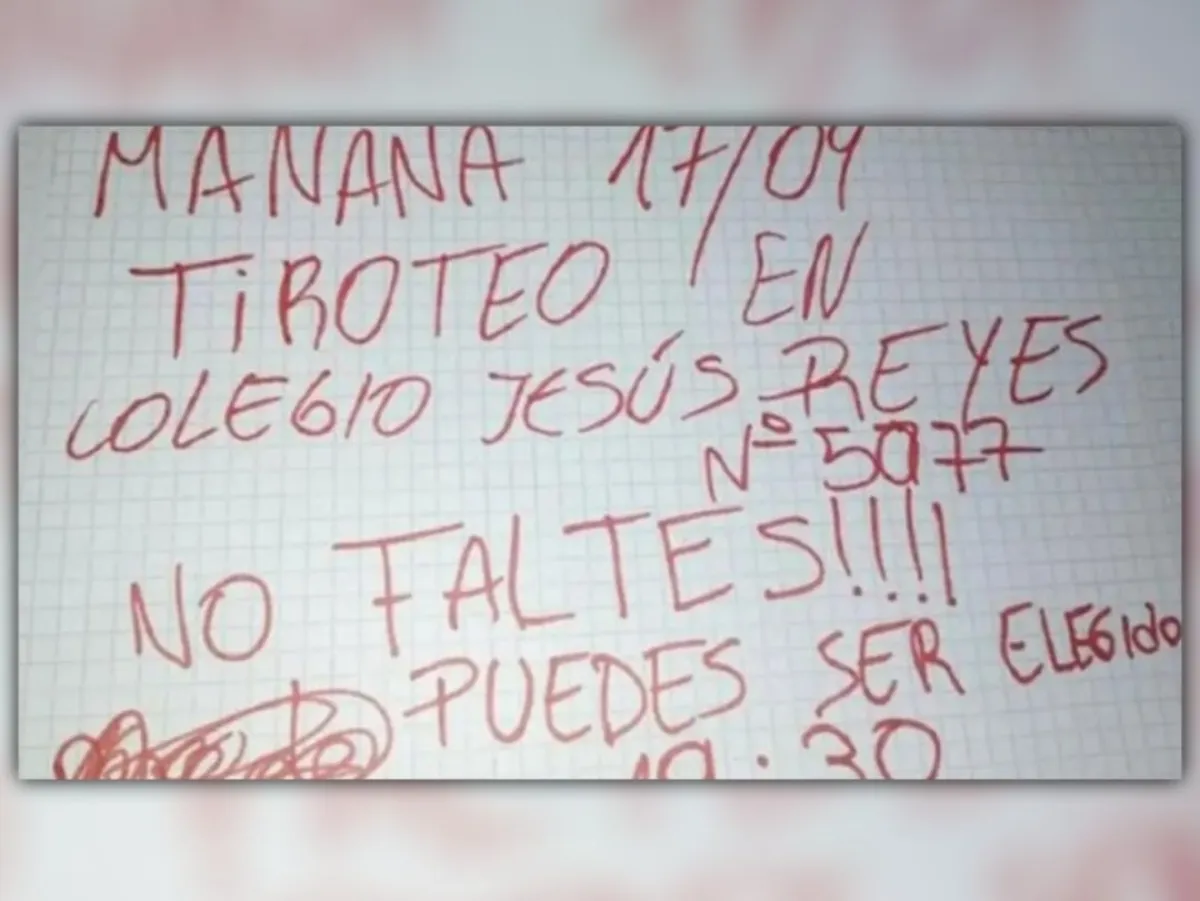 MAÑANA 17/04
TiROTEO EN
COLEGIO JESÚS REYES
Nº 5077
NO FALTES!!!!
PUEDES SER ELEGIdo